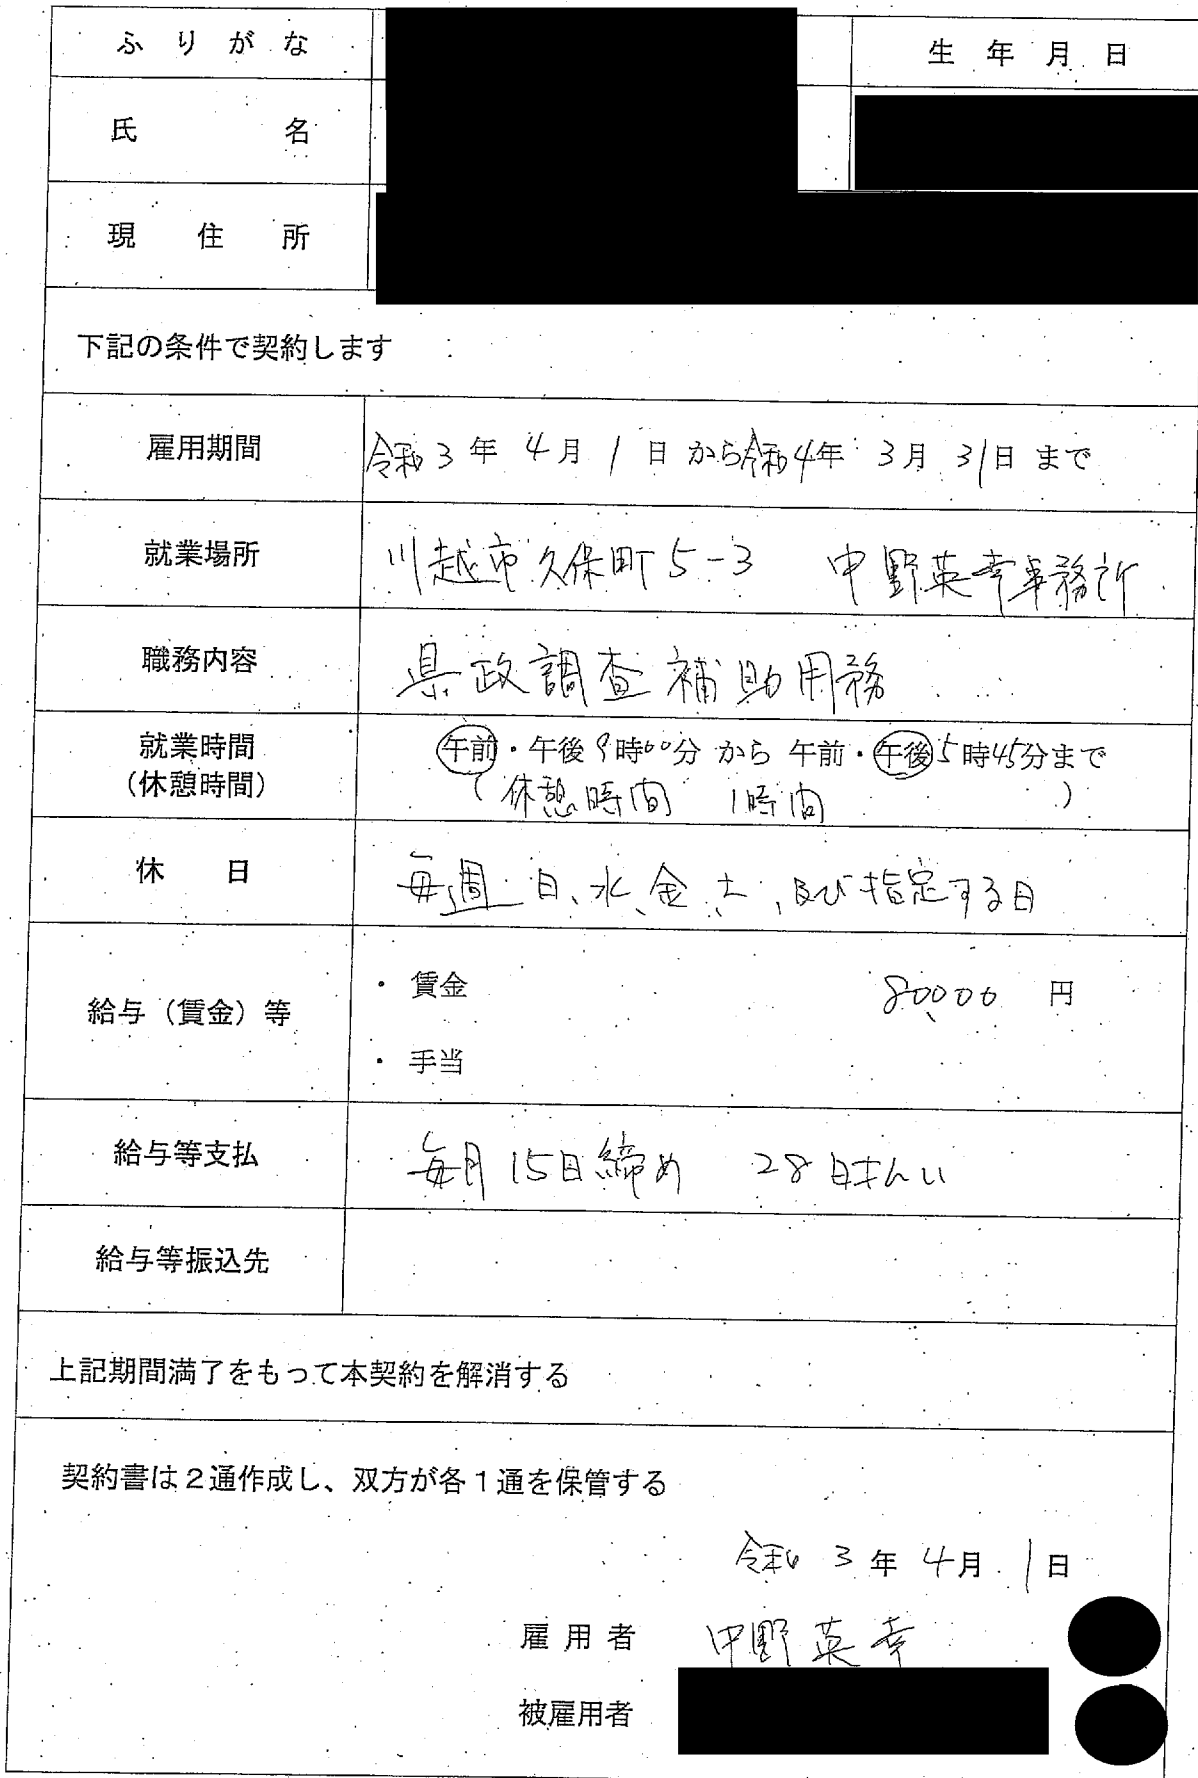 ふりがな
生年月日
氏名
現住所
下記の条件で契約します
雇用期間 令和3年4月1日から令和4年3月31日まで
就業場所 川越市久保町5-3 中野英幸事務所
職務内容 県政調査補助用務
就業時間 午前・午後9時00分から午前・午後5時45分まで
(休憩時間) (休憩時間 1時間)
休日 毎週 日、水、金、土、及び指定する日
・賃金 80,000円
給与(賃金)等
・手当
給与等支払 毎月15日締め 28日払い
給与等振込先
上記期間満了をもって本契約を解消する
契約書は2通作成し、双方が各1通を保管する
令和3年4月1日
雇用者 中野英幸
被雇用者